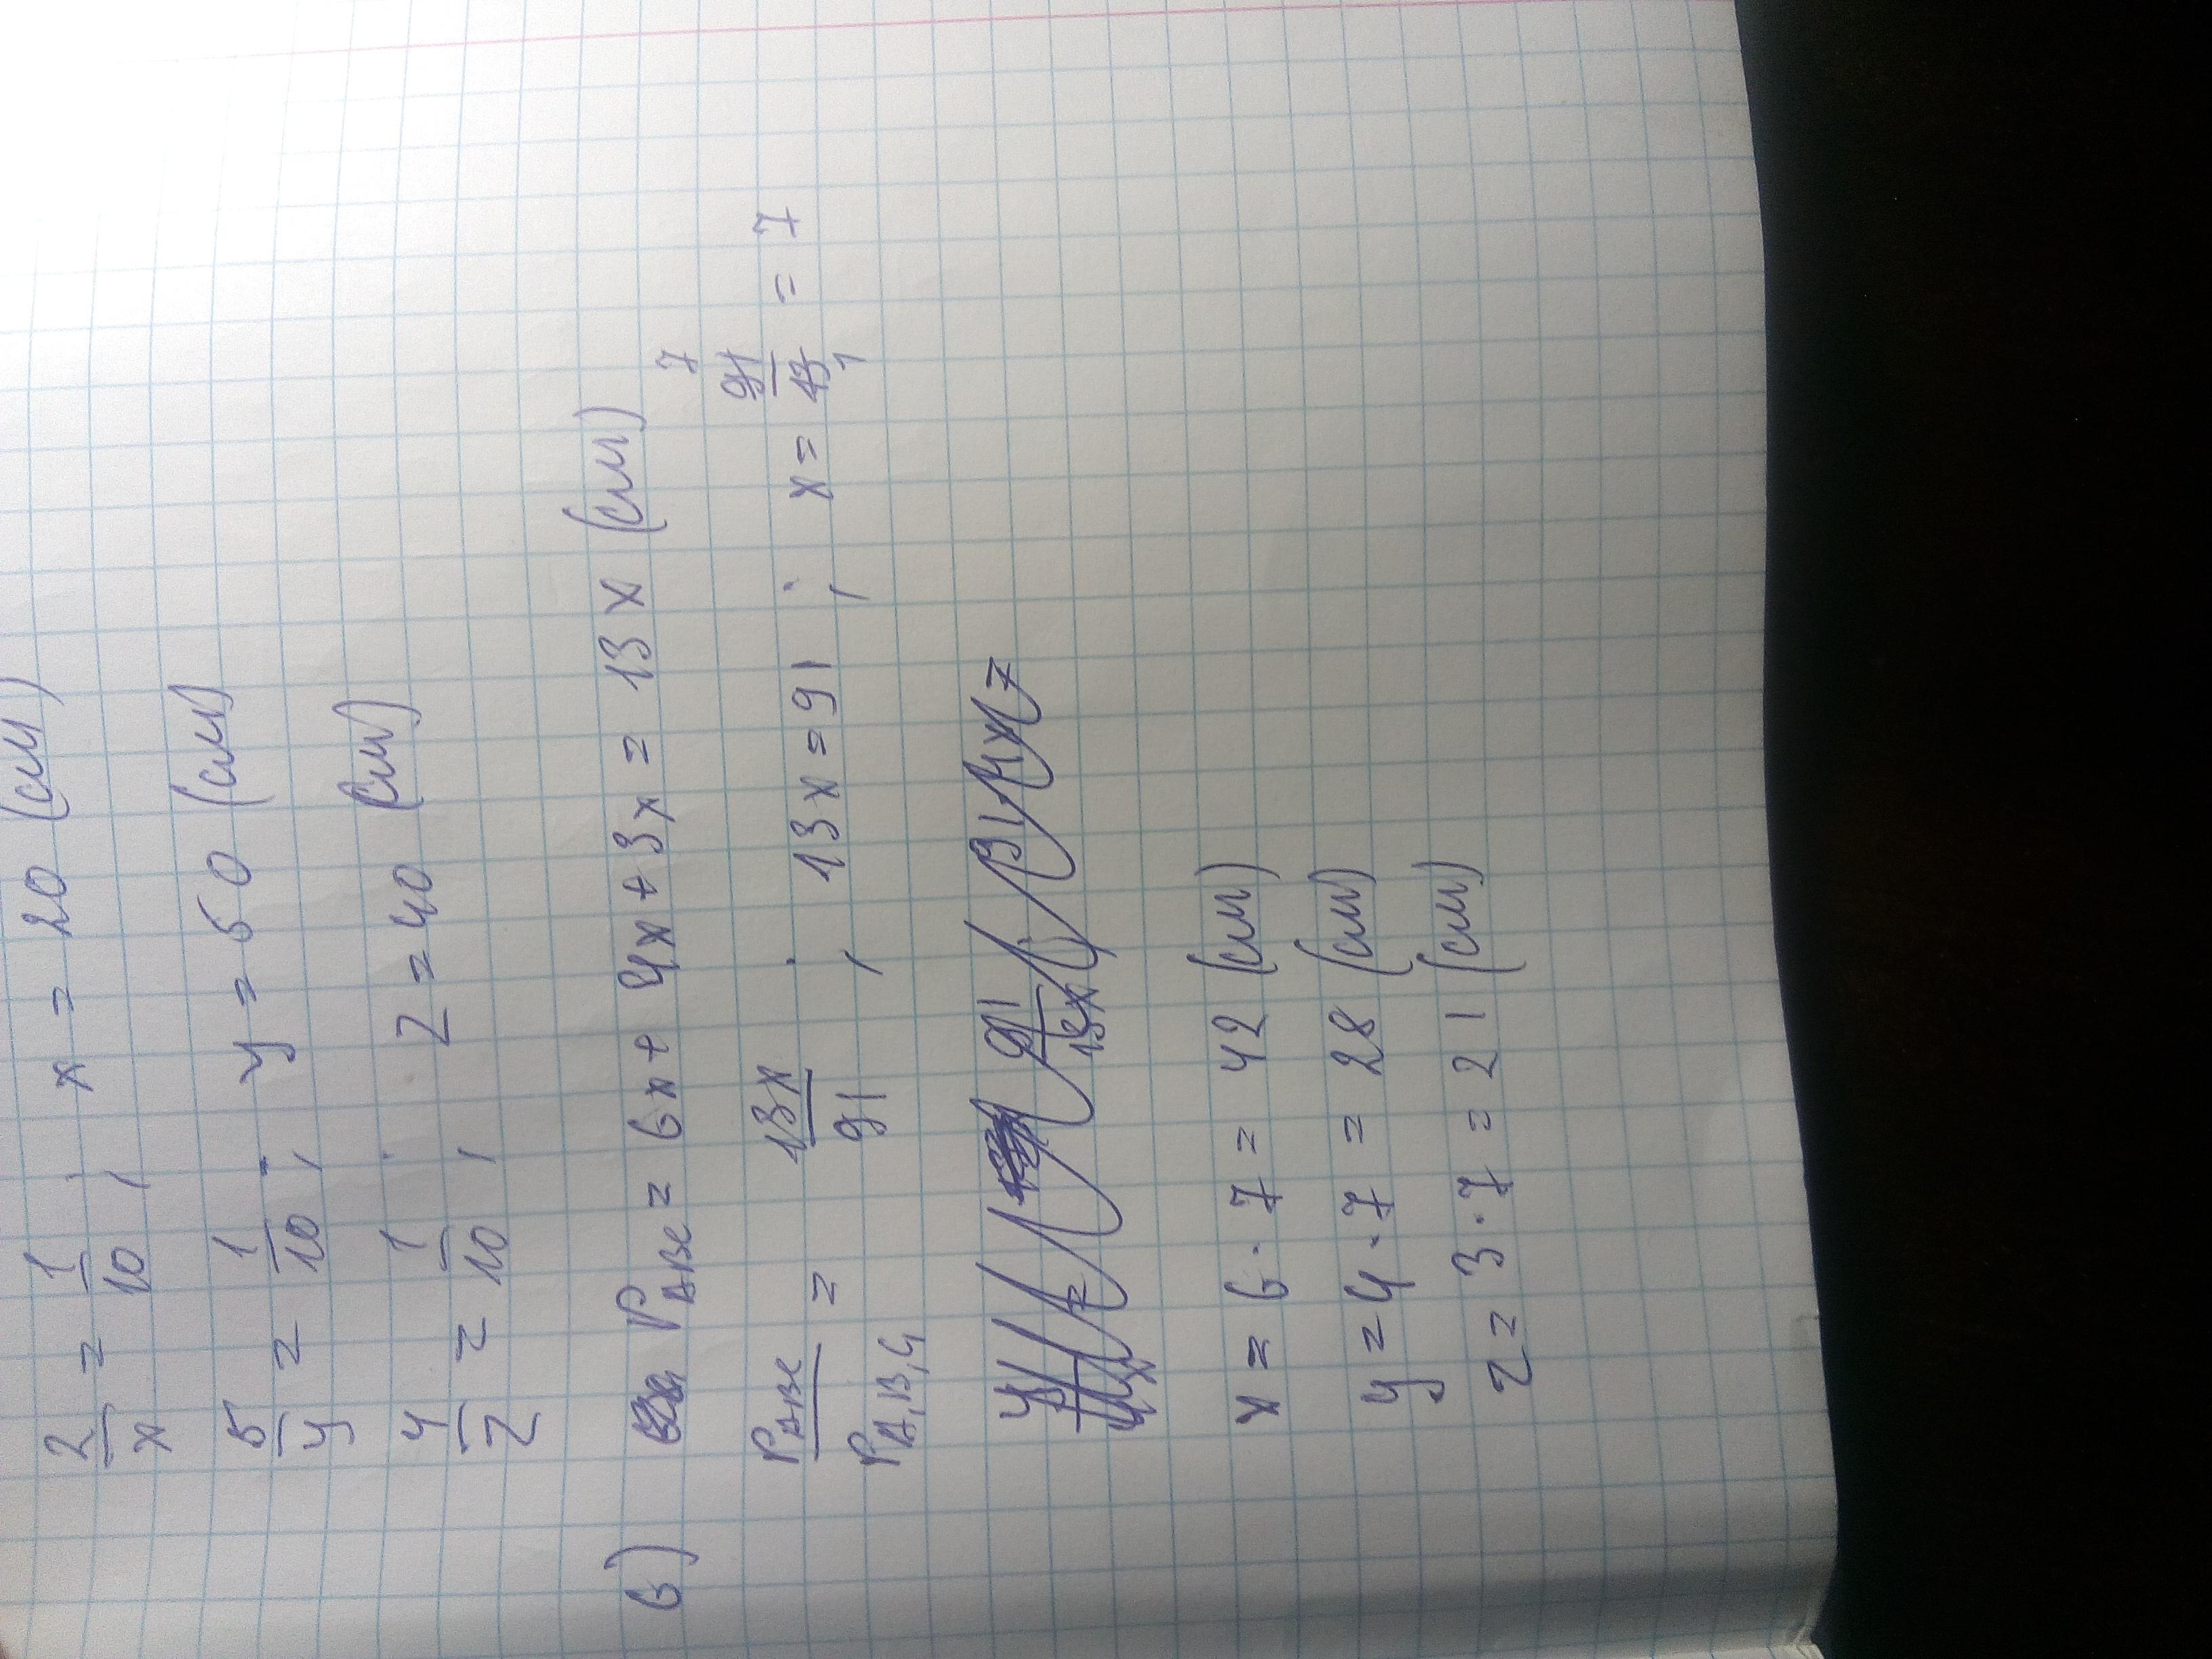 2/x = 1/10 ; x = 20 (см)
5/y = 1/10 ; y = 50 (см)
4/z = 1/10 ; z = 40 (см)
в) P ABC = 6x + 4x + 3x = 13x (см)
P ABC / P A₁B₁C₁ = 13x/91 ; 13x = 91 ; x = 91/13 = 7
x = 6 · 7 = 42 (см)
y = 4 · 7 = 28 (см)
z = 3 · 7 = 21 (см)